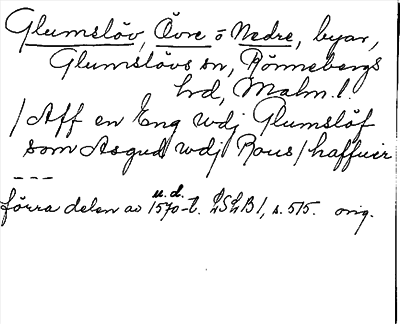 Glumslöv, Övre o Nedre, byar,
Glumslövs sn, Rönnebergs
hrd, Malm. l.
/ Aff en Eng wdj Glumslöf
som Asgud wdj Raus / haffuer
---
u. d.
förra delen av 1570-t. LSLB 1, s. 515. orig.